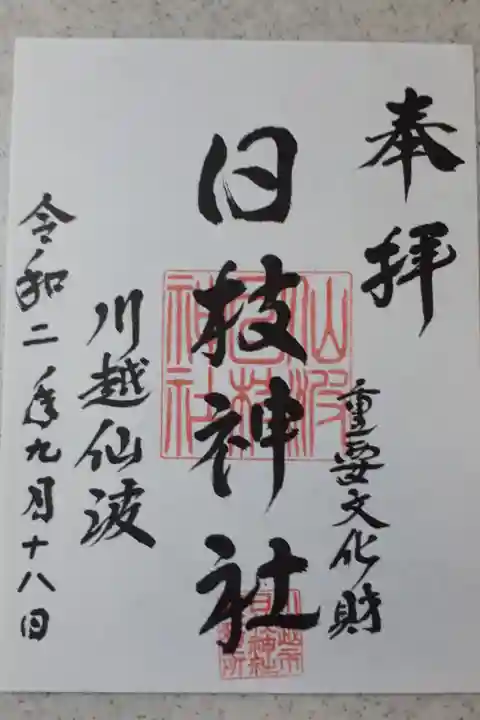 奉拝
重要文化財
日枝神社
仙波
日枝
神社
川越仙波
令和二年九月十八日